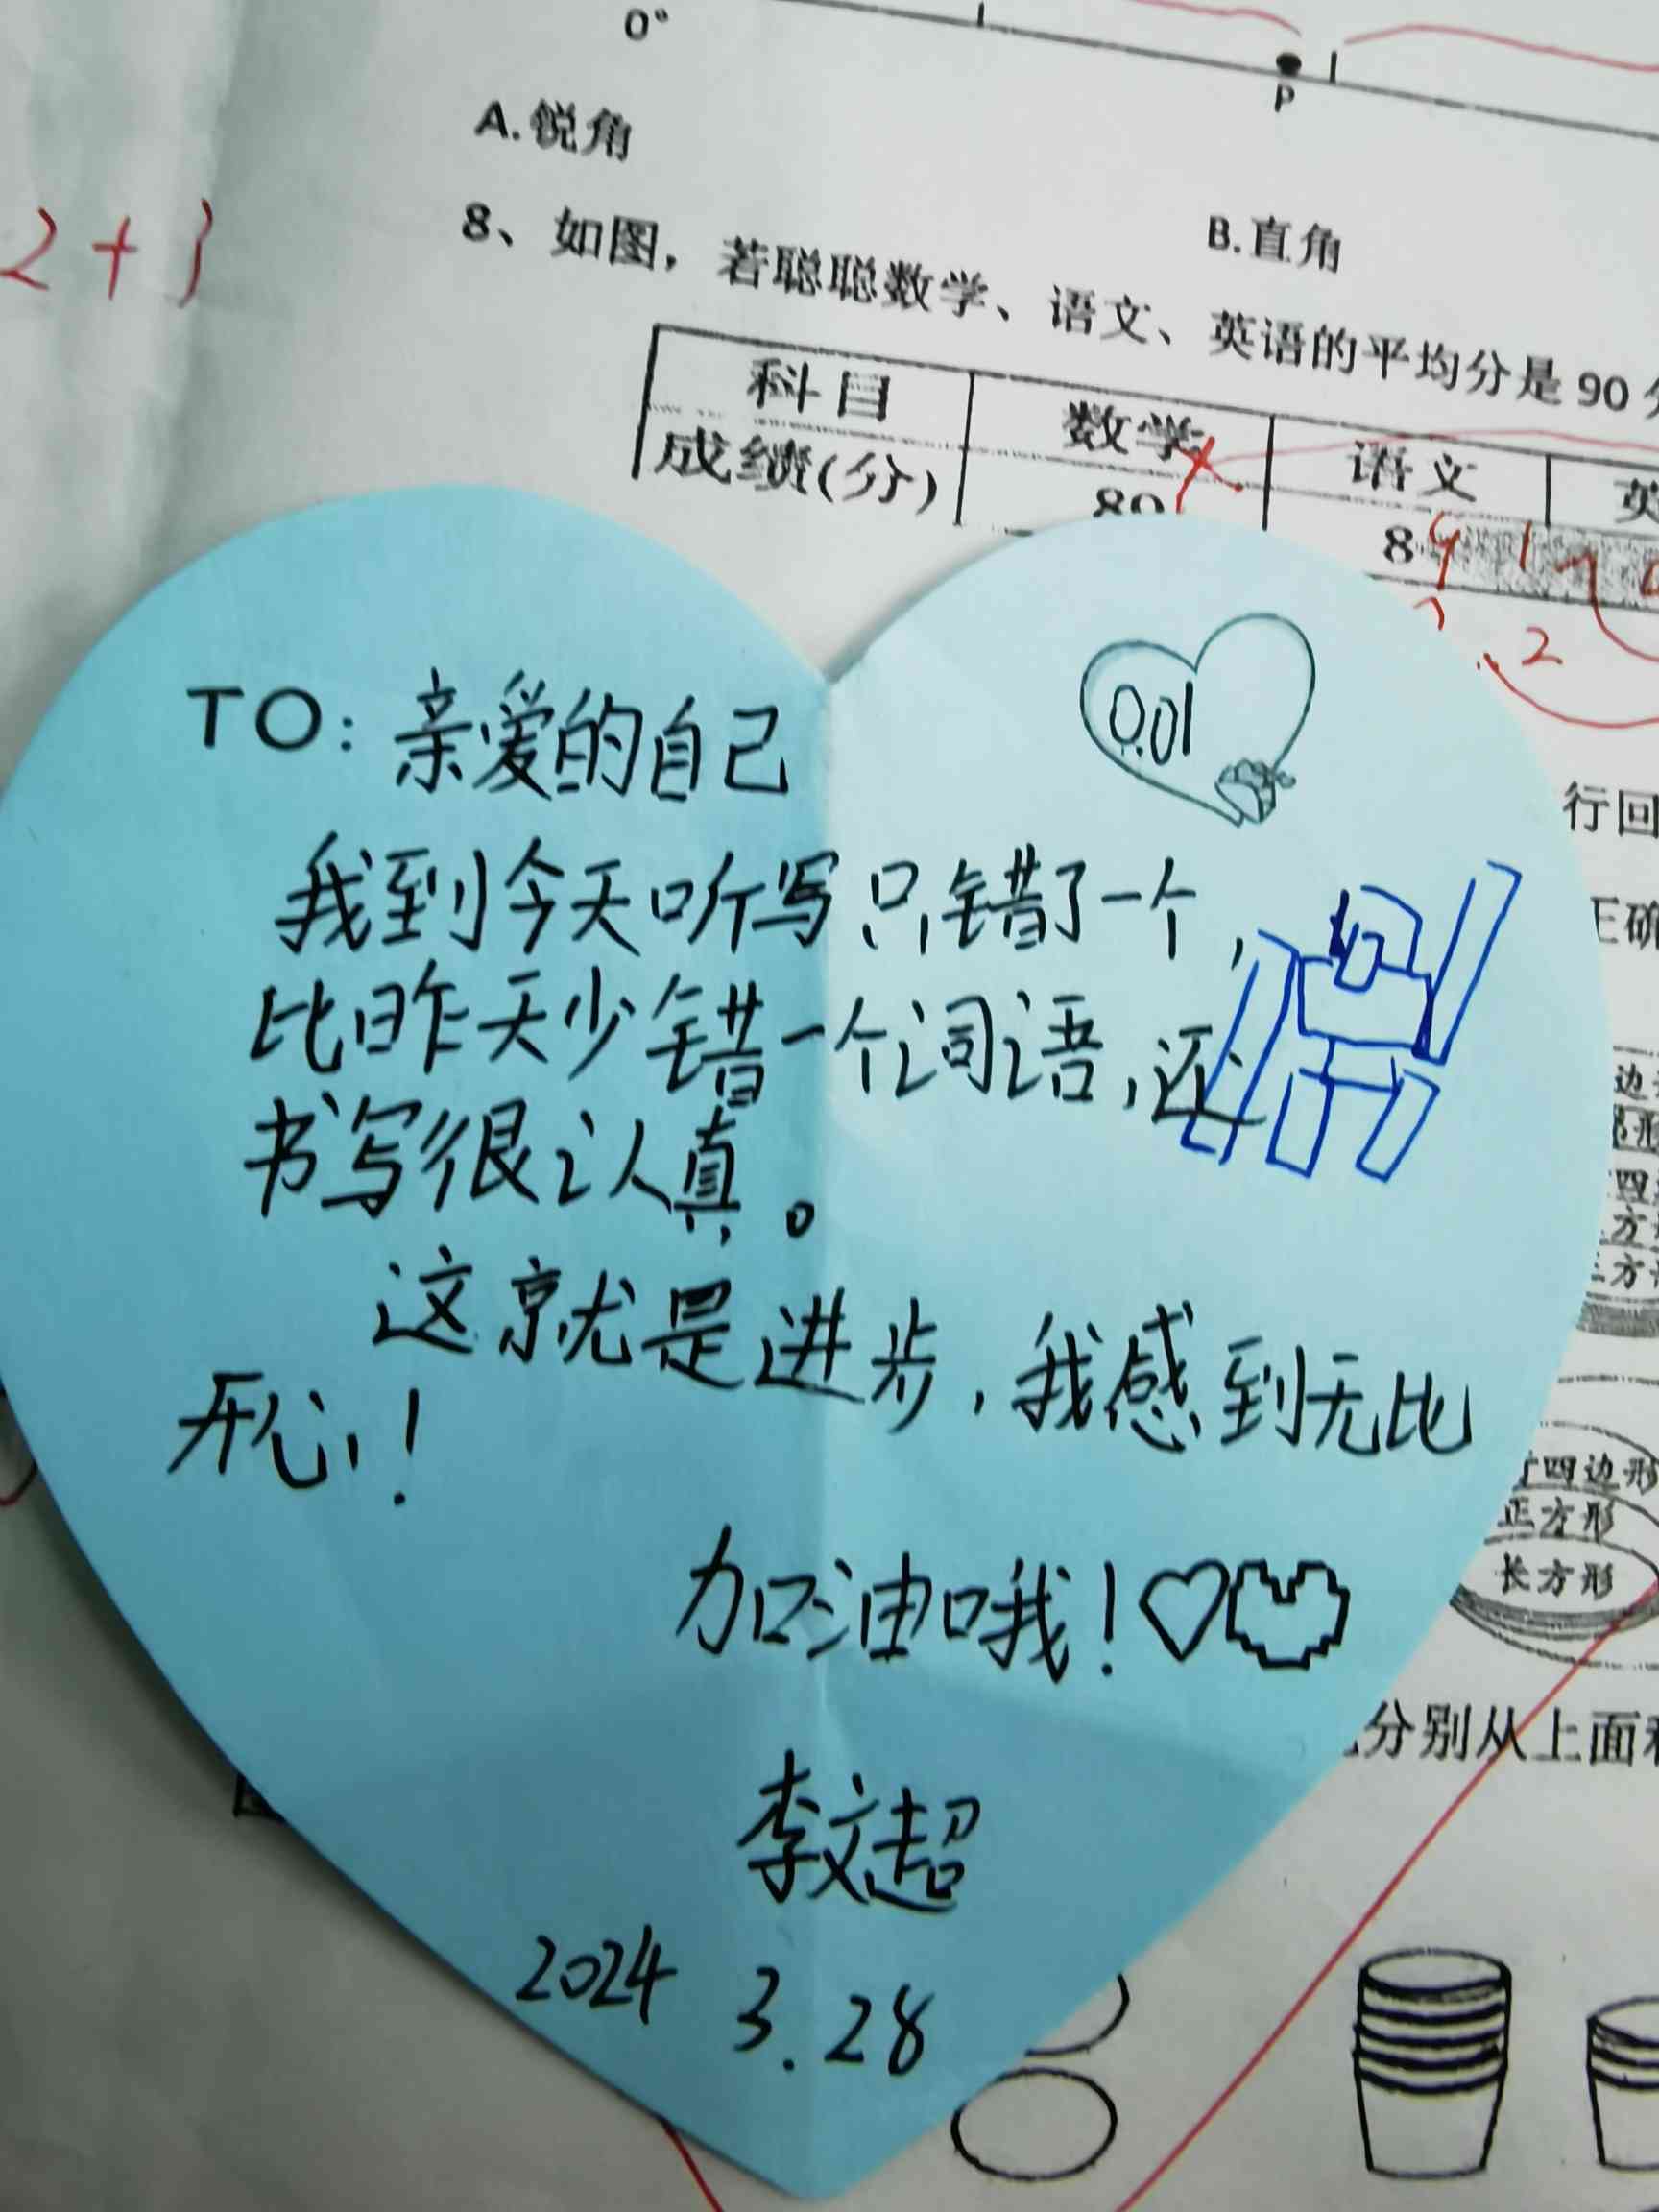 0°
P
A.锐角
B.直角
2+3
8、如图，若聪聪数学、语文、英语的平均分是90
科目 数学 语文 英
成绩(分) 80 8
2
TO: 亲爱的自己
0.01
我到今天听写只错了一个，
比昨天少错一个词语，还
书写很认真。
这就是进步，我感到无比
开心！
加油哦！♡
李文超
2024 3.28
行回
正确
四边形
正方形
长方形
分别从上面